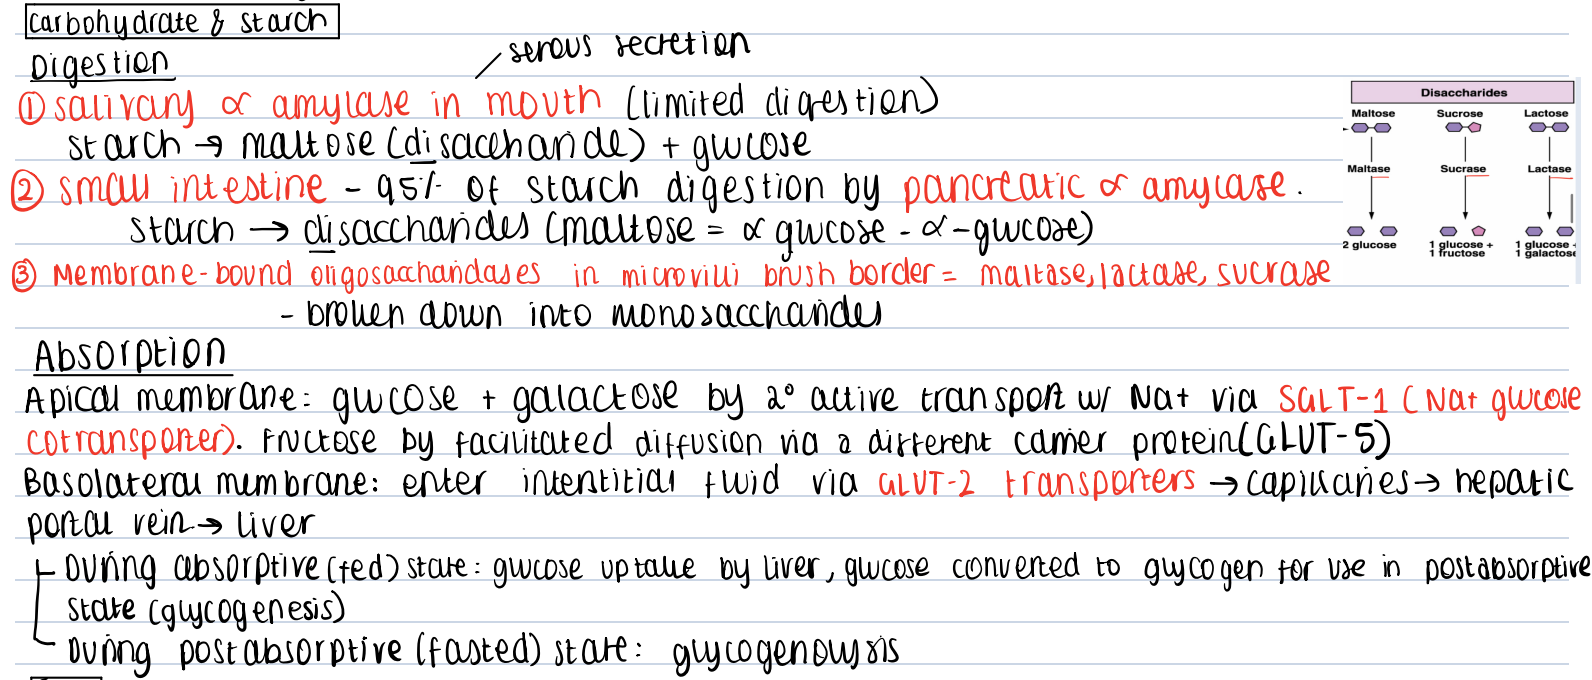 Carbohydrate & starch
Digestion
serous secretion
① salivary α amylase in mouth (limited digestion)
starch → maltose (disaccharide) + glucose
② small intestine - 95% of starch digestion by pancreatic α amylase.
starch → disaccharides (maltose = α glucose - α-glucose)
③ Membrane-bound oligosaccharidases in microvilli brush border = maltase, lactase, sucrase
- broken down into monosaccharides
Disaccharides
Maltose Sucrose Lactose
Maltase Sucrase Lactase
2 glucose 1 glucose + 1 glucose +
1 fructose 1 galactose
Absorption
Apical membrane: glucose + galactose by 2° active transport w/ Na+ via SGLT-1 (Na+ glucose
cotransporter). Fructose by facilitated diffusion via a different carrier protein (GLUT-5)
Basolateral membrane: enter interstitial fluid via GLUT-2 transporters → capillaries → hepatic
portal vein → liver
- During absorptive (fed) state: glucose uptake by liver, glucose converted to glycogen for use in postabsorptive
state (glycogenesis)
- During postabsorptive (fasted) state: glycogenolysis